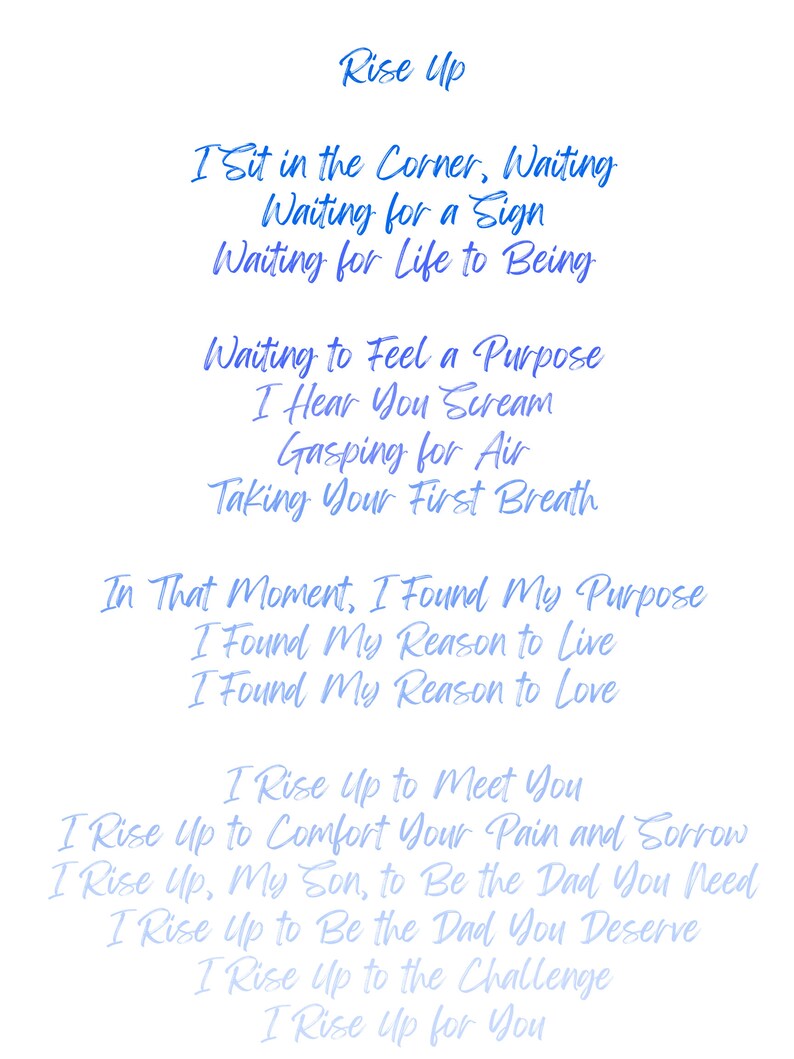 Rise Up
I Sit in the Corner, Waiting
Waiting for a Sign
Waiting for Life to Being
Waiting to Feel a Purpose
I Hear You Scream
Gasping for Air
Taking Your First Breath
In That Moment, I Found My Purpose
I Found My Reason to Live
I Found My Reason to Love
I Rise Up to Meet You
I Rise Up to Comfort Your Pain and Sorrow
I Rise Up, My Son, to Be the Dad You Need
I Rise Up to Be the Dad You Deserve
I Rise Up to the Challenge
I Rise Up for You